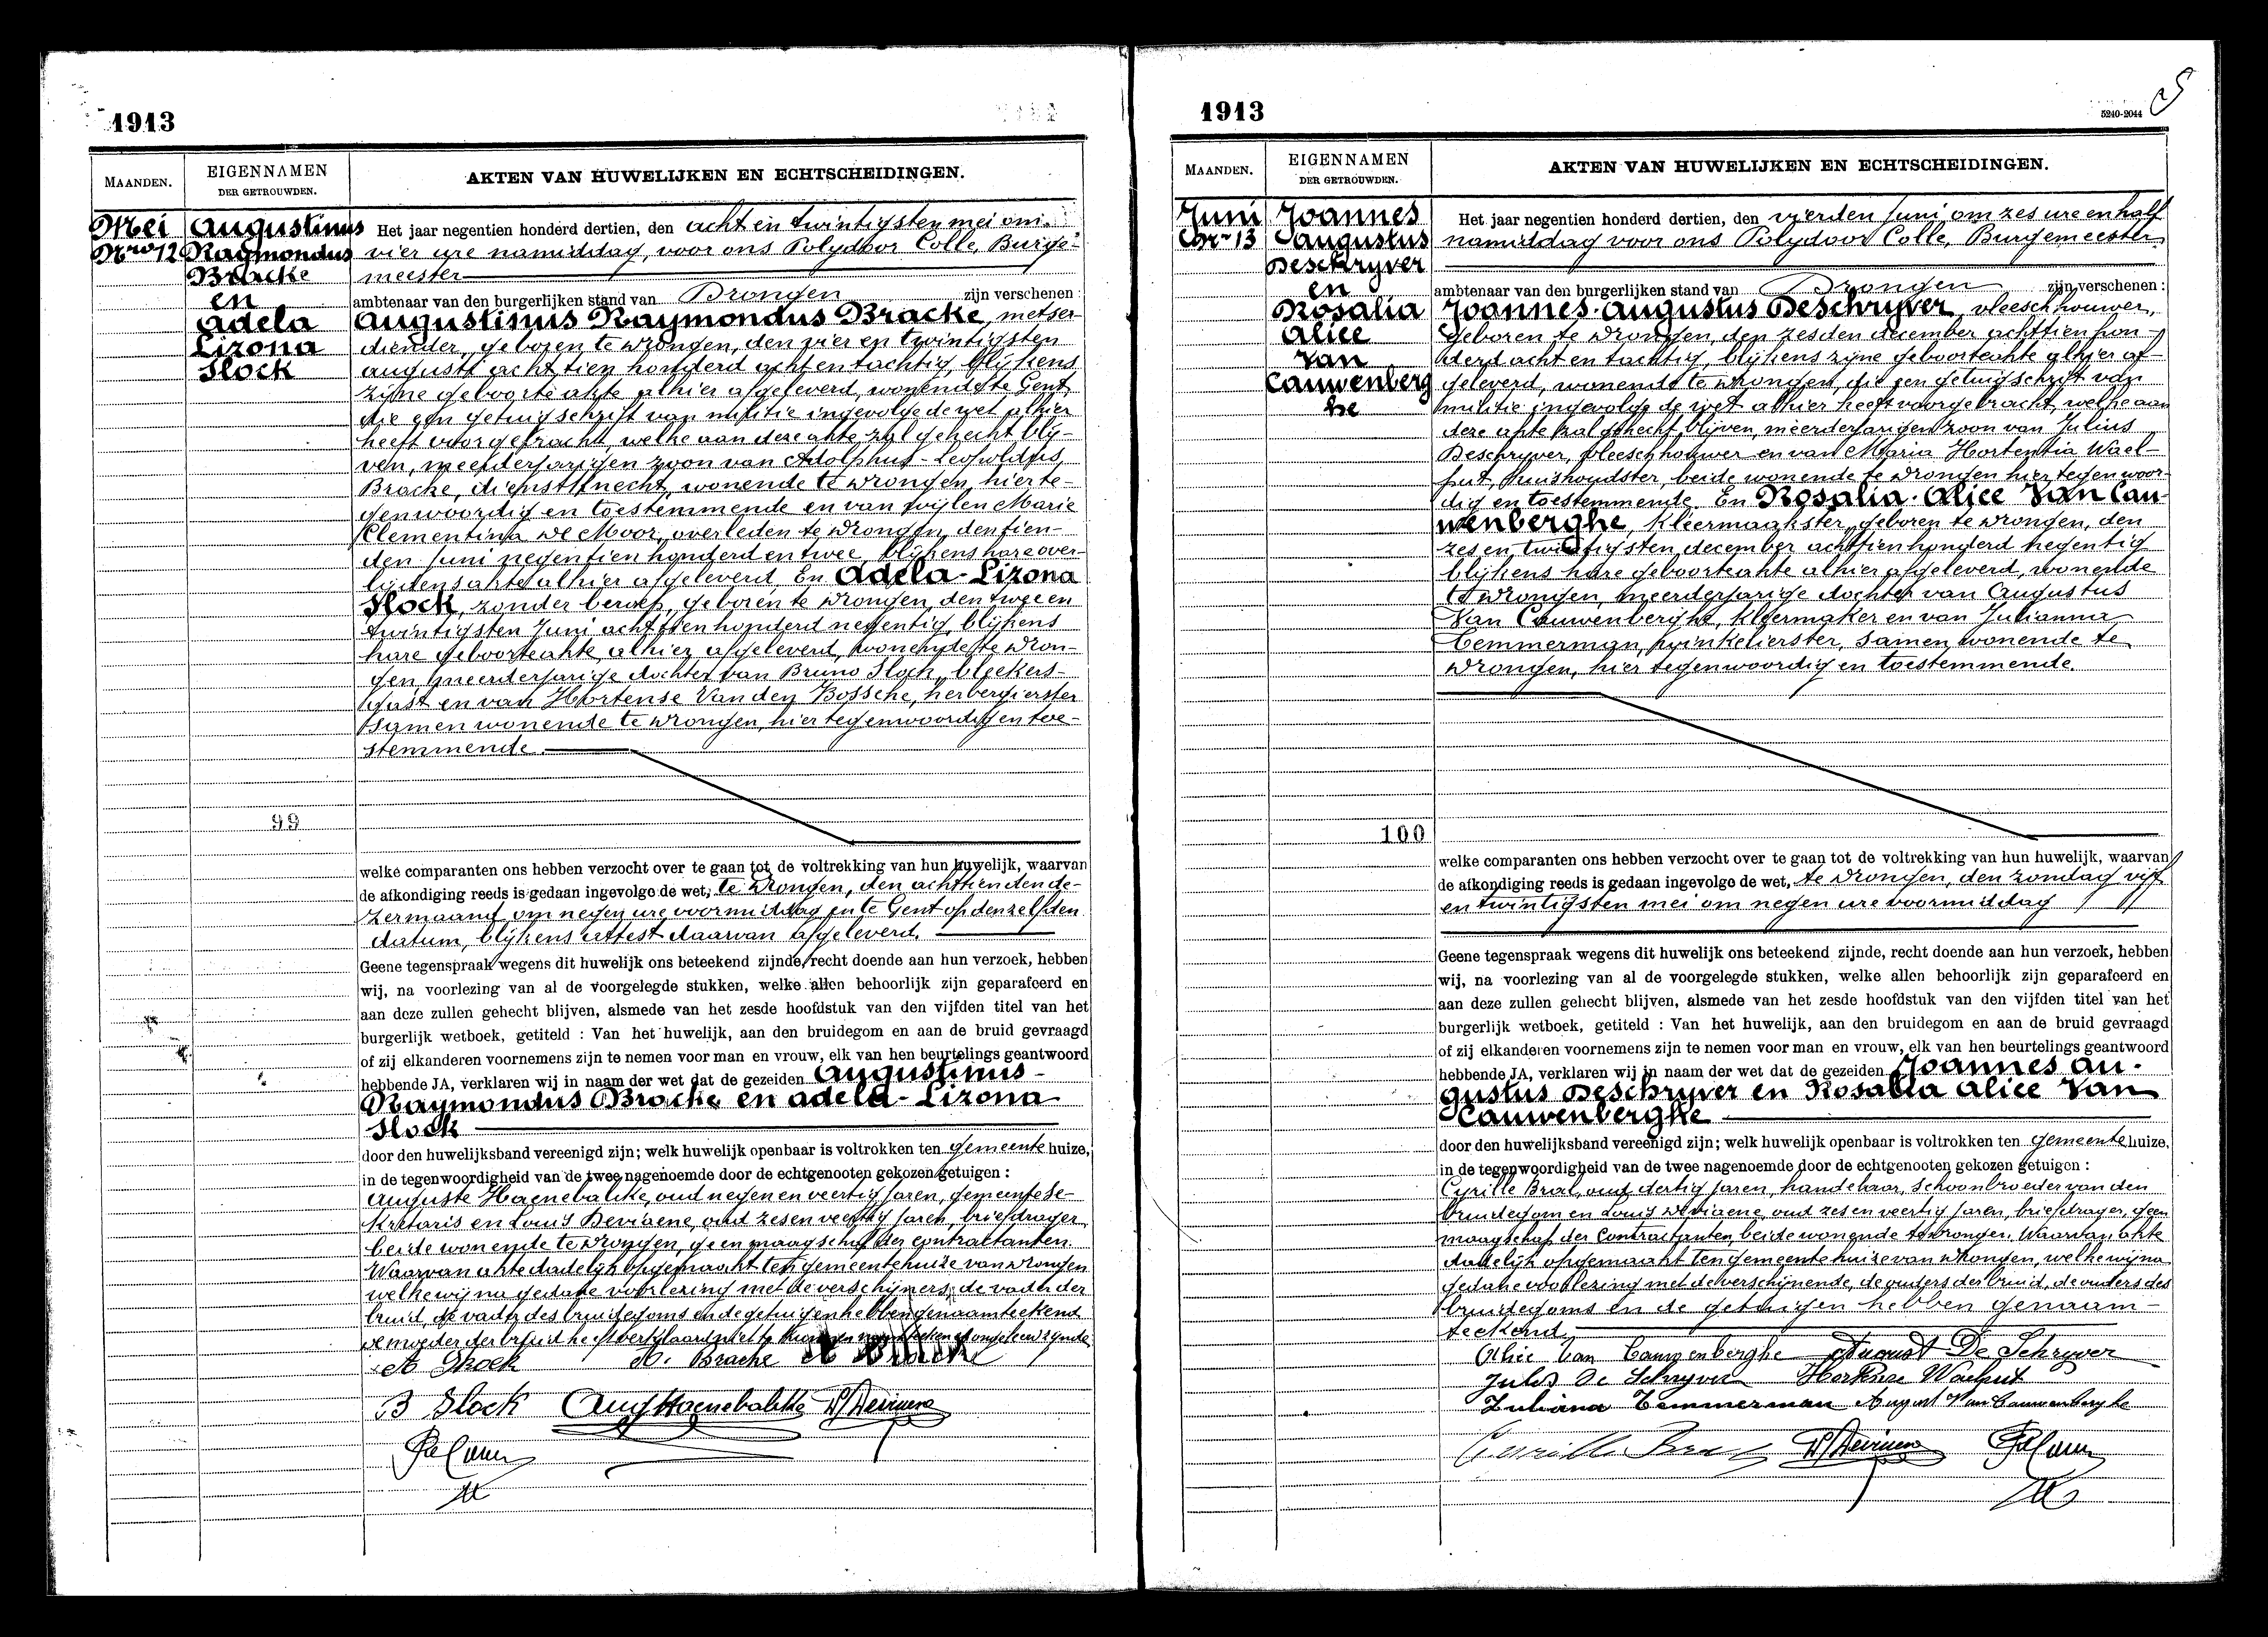 1913
MAANDEN.
EIGENNAMEN
DER GETROUWDEN.
AKTEN VAN HUWELIJKEN EN ECHTSCHEIDINGEN.
Mei
Nro 12
Augustinus
Raymondus
Bracke
en
Adela
Lizona
Slock
99
Het jaar negentien honderd dertien, den acht en twintigsten mei om
vier ure namiddag, voor ons Polydoor Colle, Burge-
meester
ambtenaar van den burgerlijken stand van Drongen zijn verschenen :
Augustinus Raymondus Bracke, metser-
diender, geboren te Drongen, den vier en twintigsten
augusti achttien honderd acht en tachtig, blijkens
zijne geboorte akte alhier afgeleverd, wonende te Gent,
die een getuigschrift van militie ingevolge de wet alhier
heeft voorgebracht, welke aan deze akte zal gehecht blij-
ven, meerderjarigen zoon van Adolphus-Leopoldus
Bracke, dienstknecht, wonende te Drongen, hier te-
genwoordig en toestemmende en van wijlen Marie
Clementina De Moor, overleden te Drongen, den tien-
den Juni negentien honderd en twee, blijkens hare over-
lijdensakte alhier afgeleverd. En Adela-Lizona
Slock, zonder beroep, geboren te Drongen, den twee en
twintigsten Juni achttien honderd negentig, blijkens
hare geboorteakte alhier afgeleverd, wonende te Dron-
gen meerderjarige dochter van Bruno Slock, bleekers-
gast en van Hortense Van den Bossche, herbergierster
samen wonende te Drongen, hier tegenwoordig en toe-
stemmende.
welke comparanten ons hebben verzocht over te gaan tot de voltrekking van hun huwelijk, waarvan
de afkondiging reeds is gedaan ingevolge de wet, te Drongen, den achttienden de-
zer maand om negen ure voormiddag en te Gent op denzelfden
datum, blijkens attest daarvan afgeleverd.
Geene tegenspraak wegens dit huwelijk ons beteekend zijnde, recht doende aan hun verzoek, hebben
wij, na voorlezing van al de voorgelegde stukken, welke allen behoorlijk zijn geparafeerd en
aan deze zullen gehecht blijven, alsmede van het zesde hoofdstuk van den vijfden titel van het
burgerlijk wetboek, getiteld : Van het huwelijk, aan den bruidegom en aan de bruid gevraagd
of zij elkanderen voornemens zijn te nemen voor man en vrouw, elk van hen beurtelings geantwoord
hebbende JA, verklaren wij in naam der wet dat de gezeiden Augustinus-
Raymondus Bracke en Adela-Lizona
Slock
door den huwelijksband vereenigd zijn; welk huwelijk openbaar is voltrokken ten gemeente huize,
in de tegenwoordigheid van de twee nagenoemde door de echtgenooten gekozen getuigen :
Auguste Haenebalcke, oud negen en veertig jaren, gemeentese-
kretaris en Louis Deviaene, oud zes en veertig jaren, briefdrager
beide wonende te Drongen, geen maagschap der contractanten.
Waarvan akte dadelijk opgemaakt ten gemeentehuize van Drongen
welke wij na gedane voorlezing met de verschijners, de vader der
bruid, de vader des bruidegoms en de getuigen hebben genaamteekend
de moeder der bruid heeft verklaard niet te kunnen naamteekenen ongeleerd zijnde
A Slock A. Bracke
B Slock Aug Haenebalcke L Deviaene
P. Colle
1913
5240-2044
MAANDEN.
EIGENNAMEN
DER GETROUWDEN.
AKTEN VAN HUWELIJKEN EN ECHTSCHEIDINGEN.
Juni
Nr 13
Joannes
Augustus
Deschryver
en
Rosalia
Alice
Van
Cauwenberg
he
100
Het jaar negentien honderd dertien, den vierden Juni, om zes ure en half
namiddag voor ons Polydoor Colle, Burgemeester
ambtenaar van den burgerlijken stand van Drongen zijn verschenen :
Joannes-Augustus Deschryver, vleeschhouwer,
geboren te Drongen, den zesden december achttien hon-
derd acht en tachtig, blijkens zijne geboorteakte alhier af-
geleverd, wonende te Drongen, die een getuigschrift van
militie ingevolge de wet alhier heeft voorgebracht, welke aan
deze akte zal gehecht blijven, meerderjarigen zoon van Julius
Deschryver, vleeschhouwer en van Maria Hortentia Wael-
put, huishoudster, beide wonende te Drongen hier tegenwoor-
dig en toestemmende. En Rosalia-Alice Van Cau-
wenberghe, kleermaakster, geboren te Drongen, den
zes en twintigsten december achttien honderd negentig
blijkens hare geboorteakte alhier afgeleverd, wonende
te Drongen, meerderjarige dochter van Augustus
Van Cauwenberghe, kleermaker en van Julianna
Temmerman, winkelierster, samen wonende te
Drongen, hier tegenwoordig en toestemmende.
welke comparanten ons hebben verzocht over te gaan tot de voltrekking van hun huwelijk, waarvan
de afkondiging reeds is gedaan ingevolge de wet, te Drongen, den zondag vijf
en twintigsten mei om negen ure voormiddag
Geene tegenspraak wegens dit huwelijk ons beteekend zijnde, recht doende aan hun verzoek, hebben
wij, na voorlezing van al de voorgelegde stukken, welke allen behoorlijk zijn geparafeerd en
aan deze zullen gehecht blijven, alsmede van het zesde hoofdstuk van den vijfden titel van het
burgerlijk wetboek, getiteld : Van het huwelijk, aan den bruidegom en aan de bruid gevraagd
of zij elkanderen voornemens zijn te nemen voor man en vrouw, elk van hen beurtelings geantwoord
hebbende JA, verklaren wij in naam der wet dat de gezeiden Joannes Au-
gustus Deschryver en Rosalia Alice Van
Cauwenberghe
door den huwelijksband vereenigd zijn; welk huwelijk openbaar is voltrokken ten gemeente huize,
in de tegenwoordigheid van de twee nagenoemde door de echtgenooten gekozen getuigen :
Cyrille Bral, oud dertig jaren, handelaar, schoonbroeder van den
bruidegom en Louis Deviaene, oud zes en veertig jaren, briefdrager, geen
maagschap der Contractanten, beide wonende te Drongen. Waarvan akte
dadelijk opgemaakt ten gemeentehuize van Drongen, welke wij na
gedane voorlezing met de verschijnende, de ouders der bruid, de ouders des
bruidegoms en de getuigen hebben genaam-
teekend.
Alice Van Cauwenberghe August De Schryver
Jules De Schryver Hortense Waelput
Juliana Temmerman August Van Cauwenberghe
Cyrille Bral L Deviaene P. Colle